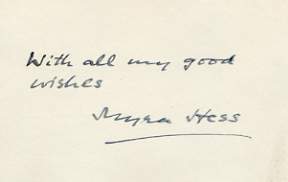 With all my good
wishes
Myra Hess